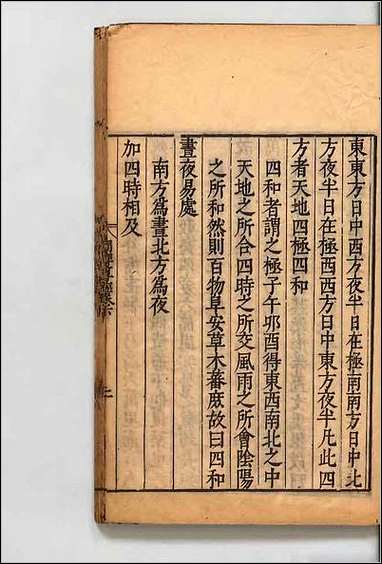 東東方日中西方夜半日在極南南方日中北
方夜半日在極西西方日中東方夜半凡此四
方者天地四極四和
四和者謂之極子午卯酉得東西南北之中
天地之所合四時之所交風雨之所會陰陽
之所和然則百物阜安草木蕃庶故曰四和
晝夜易處
南方爲晝北方爲夜
加四時相及